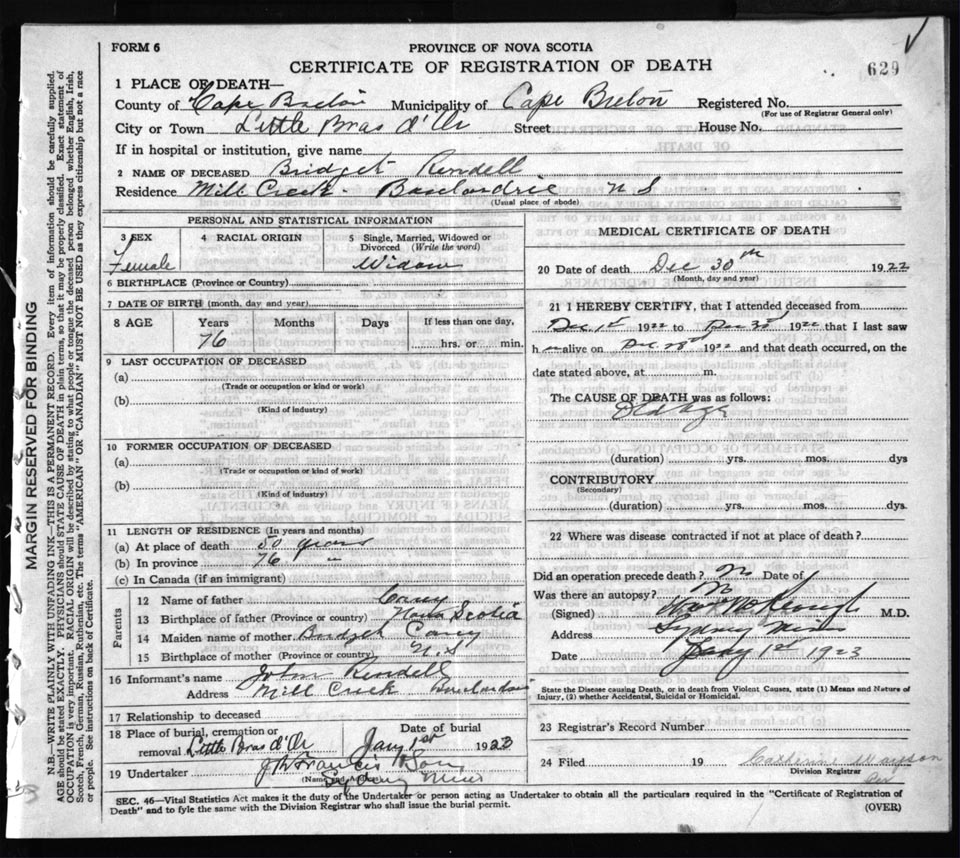 FORM 6
PROVINCE OF NOVA SCOTIA
CERTIFICATE OF REGISTRATION OF DEATH
629
1 PLACE OF DEATH—
County of Cape Breton Municipality of Cape Breton Registered No.
(For use of Registrar General only)
City or Town Little Bras d'Or Street House No.
If in hospital or institution, give name
2 NAME OF DECEASED Bridget Rendell
Residence Mill Creek N S
(Usual place of abode)
PERSONAL AND STATISTICAL INFORMATION
3 SEX
Female
4 RACIAL ORIGIN
5 Single, Married, Widowed or Divorced (Write the word)
Widow
6 BIRTHPLACE (Province or Country)
7 DATE OF BIRTH (month, day and year)
8 AGE Years Months Days If less than one day,
76 hrs. or min.
9 LAST OCCUPATION OF DECEASED
(a)
(Trade or occupation or kind or work)
(b)
(Kind of industry)
10 FORMER OCCUPATION OF DECEASED
(a)
(Trade or occupation or kind of work)
(b)
(Kind of industry)
11 LENGTH OF RESIDENCE (In years and months)
(a) At place of death 50 years
(b) In province 76 "
(c) In Canada (if an immigrant)
Parents
12 Name of father Carey
13 Birthplace of father (Province or country) Nova Scotia
14 Maiden name of mother Bridget Carey
15 Birthplace of mother (Province or country) N.S
16 Informant's name John Rendell
Address Mill Creek
17 Relationship to deceased
18 Place of burial, cremation or removal Little Bras d'Or
Date of burial
Jany 1st 1923
19 Undertaker J W Francis & Son
(Name and Address)
Sydney Mines
MEDICAL CERTIFICATE OF DEATH
20 Date of death Dec 30th 1922
(Month, day and year)
21 I HEREBY CERTIFY, that I attended deceased from
Dec 1st 1922 to Dec 30th 1922 that I last saw
h alive on Dec 28th 1922 and that death occurred, on the
date stated above, at m.
The CAUSE OF DEATH was as follows:
Old age
(duration) yrs. mos. dys
CONTRIBUTORY
(Secondary)
(duration) yrs. mos. dys.
22 Where was disease contracted if not at place of death?
Did an operation precede death? No Date of
Was there an autopsy? No
(Signed) McKeough M.D.
Address Sydney Mines
Date Jany 1st 1923
State the Disease causing Death, or in death from Violent Causes, state (1) Means and Nature of
Injury, (2) whether Accidental, Suicidal or Homicidal.
23 Registrar's Record Number
24 Filed 19 Catherine
Division Registrar
SEC. 46—Vital Statistics Act makes it the duty of the Undertaker or person acting as Undertaker to obtain all the particulars required in the "Certificate of Registration of
Death" and to fyle the same with the Division Registrar who shall issue the burial permit.
(OVER)
MARGIN RESERVED FOR BINDING
N.B.—WRITE PLAINLY WITH UNFADING INK—THIS IS A PERMANENT RECORD. Every item of information should be carefully supplied.
AGE should be stated EXACTLY. PHYSICIANS should STATE CAUSE OF DEATH in plain terms, so that it may be properly classified. Exact statement of
OCCUPATION is very important. RACIAL ORIGIN will be described by stating to what people or tongue the deceased person belonged whether English, Irish,
Scotch, French, German, Russian, Ruthenian, etc. The terms "AMERICAN" or "CANADIAN" MUST NOT BE USED as they express citizenship but not a race
or people. See instructions on back of Certificate.